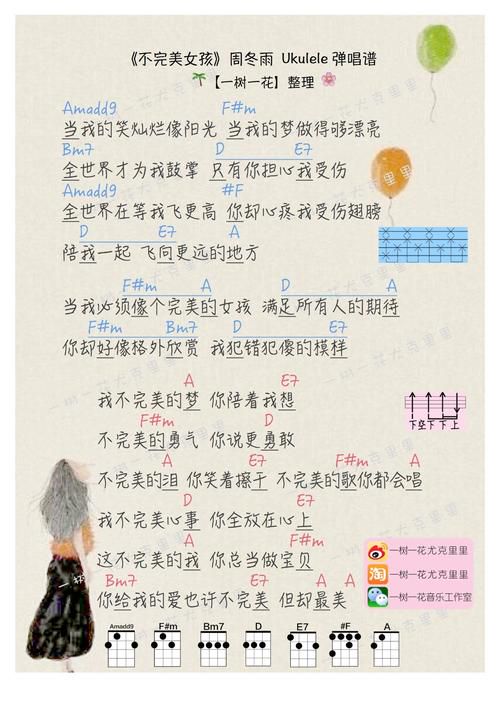 《不完美女孩》周冬雨 Ukulele 弹唱谱
【一树一花】整理
Amadd9 F#m
当我的笑灿烂像阳光 当我的梦做得够漂亮
Bm7 D E7
全世界才为我鼓掌 只有你担心我受伤
Amadd9 #F
全世界在等我飞更高 你却心疼我受伤翅膀
D E7 A
陪我一起 飞向更远的地方
F#m A D A
当我必须像个完美的女孩 满足所有人的期待
F#m Bm7 D E7
你却好像格外欣赏 我犯错犯傻的模样
A E7
我不完美的梦 你陪着我想
F#m D
不完美的勇气 你说更勇敢
A E7 F#m A
不完美的泪 你笑着擦干 不完美的歌你都会唱
D A
我不完美心事 你全放在心上
F#m D
这不完美的我 你总当做宝贝
Bm7 E7 A
你给我的爱也许不完美 但却最美
下空下下上
一树一花尤克里里
淘 一树一花尤克里里
一树一花音乐工作室
Amadd9 F#m Bm7 D E7 #F A
一树一花尤克里里